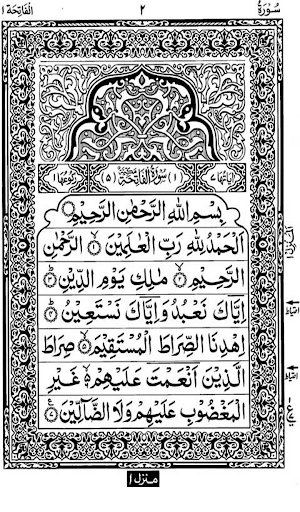 سُوْرَةُ ٢ اَلْفَاتِحَة ١
اٰيَاتُهَا ٧ (١) سُوْرَةُ الْفَاتِحَةِ (٥) رُكُوْعُهَا ١
بِسْمِ اللهِ الرَّحْمٰنِ الرَّحِيْمِ
اَلْحَمْدُ لِلّٰهِ رَبِّ الْعٰلَمِيْنَ ۙ﴿١﴾ الرَّحْمٰنِ
الرَّحِيْمِ ۙ﴿٢﴾ مٰلِكِ يَوْمِ الدِّيْنِ ؕ﴿٣﴾
اِيَّاكَ نَعْبُدُ وَاِيَّاكَ نَسْتَعِيْنُ ؕ﴿٤﴾
اِهْدِنَا الصِّرَاطَ الْمُسْتَقِيْمَ ۙ﴿٥﴾ صِرَاطَ
الَّذِيْنَ اَنْعَمْتَ عَلَيْهِمْ ۙ۬﴿٦﴾ غَيْرِ
الْمَغْضُوْبِ عَلَيْهِمْ وَلَا الضَّآلِّيْنَ ﴿٧﴾
منزل ١